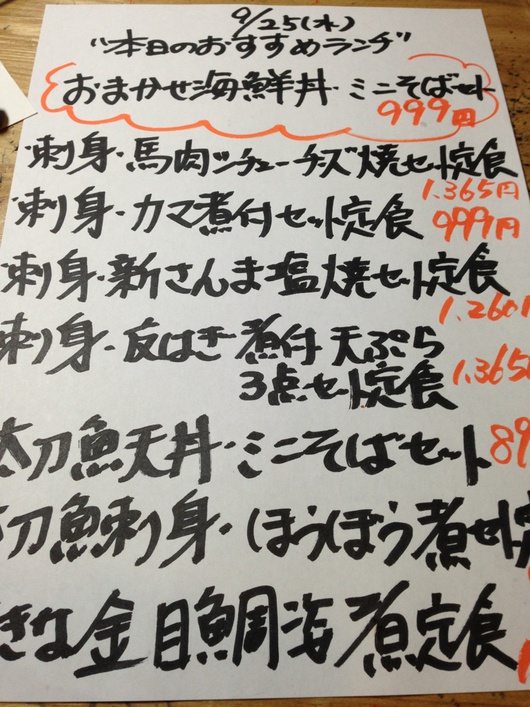 9/25(水)
"本日のおすすめランチ"
おまかせ海鮮丼・ミニそばセット
999円
刺身・馬肉シチューチーズ焼セット定食
1.365円
刺身・カマ煮付セット定食
999円
刺身・新さんま塩焼セット定食
1.260円
刺身・皮はぎ煮付 天ぷら
3点セット定食
1.365
太刀魚天丼・ミニそばセット
89
刀魚刺身・ほうぼう煮セット定
きな金目鯛海煮定食
1